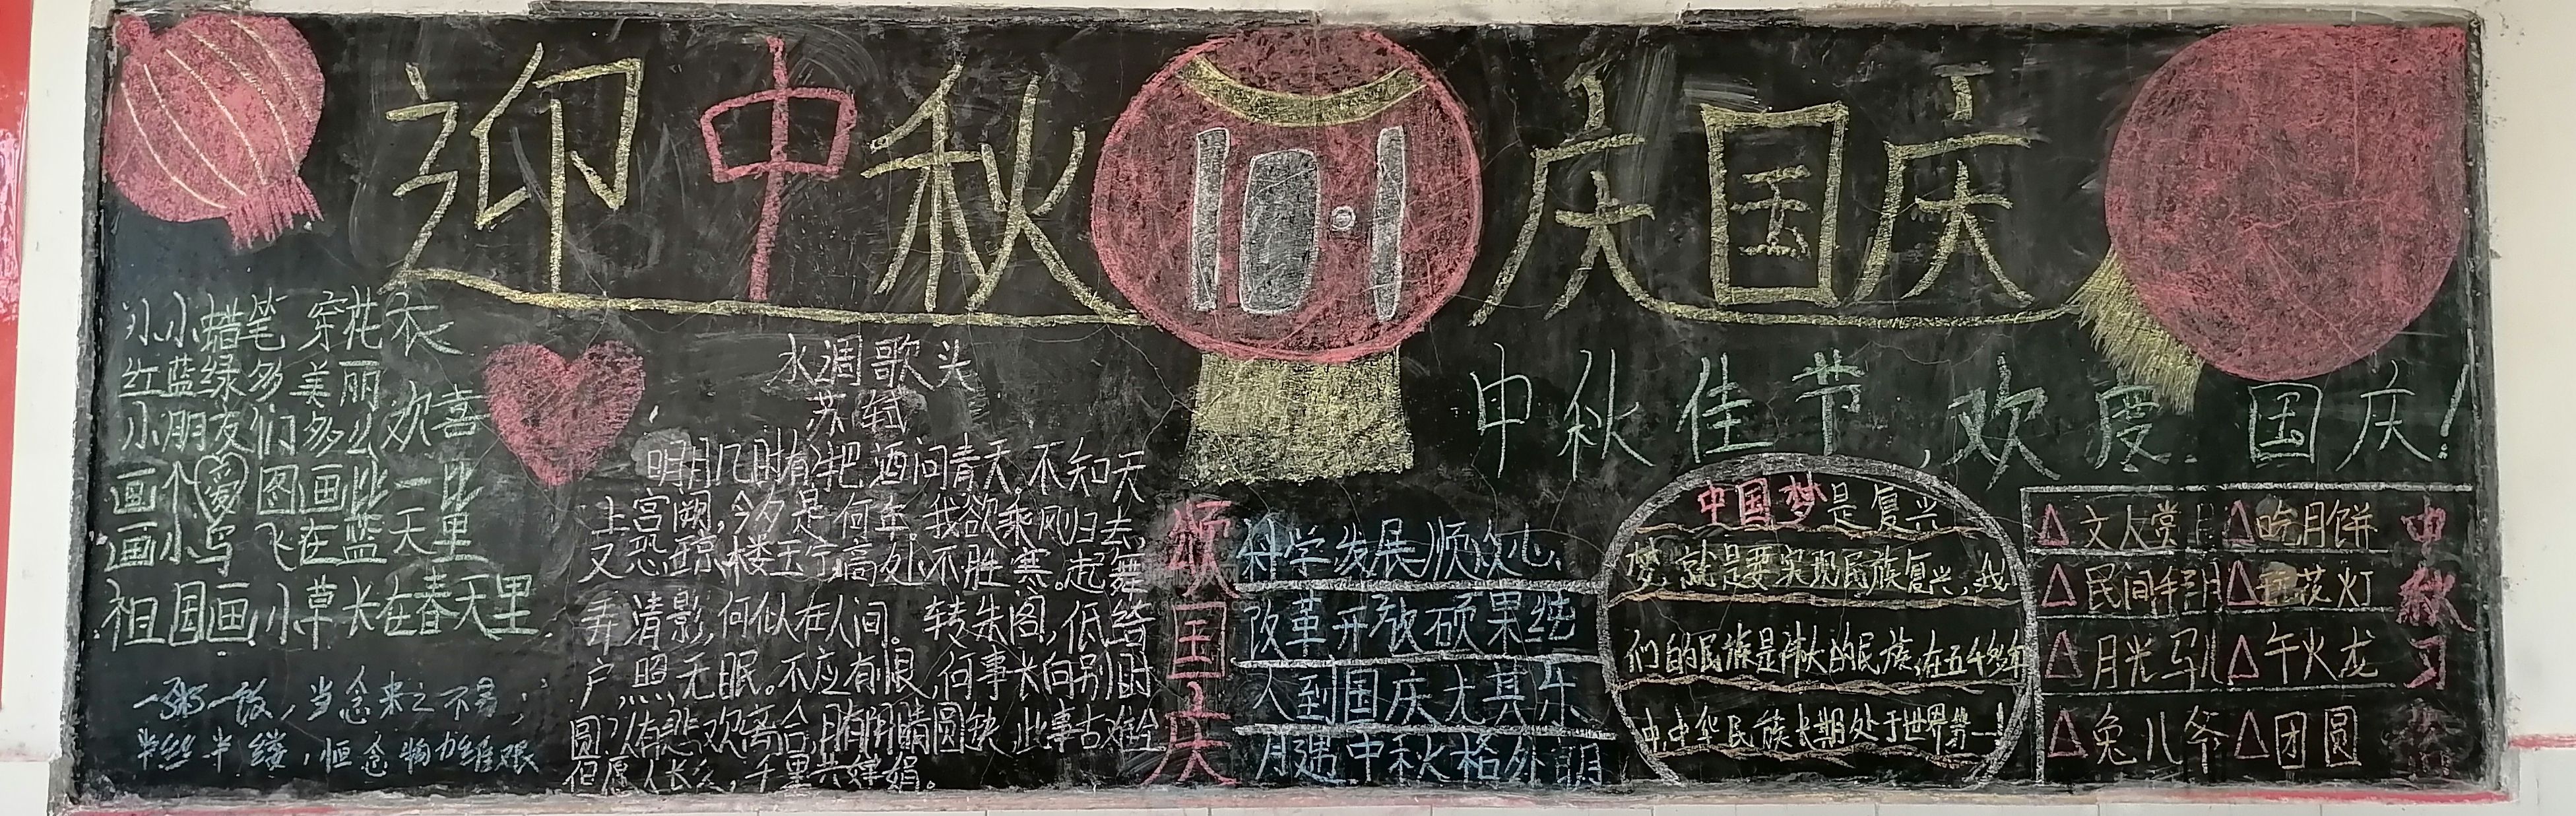 迎中秋
10·1
庆国庆
小小蜡笔 穿花衣
红蓝绿多美丽
小朋友们多么欢喜
画个爱图画比一比
画小鸟飞在蓝天里
祖国画小草长在春天里
一粥一饭，当念来之不易；
半丝半缕，恒念物力维艰
水调歌头
苏轼
明月几时有，把酒问青天。不知天
上宫阙，今夕是何年。我欲乘风归去，
又恐琼楼玉宇，高处不胜寒。起舞
弄清影，何似在人间。转朱阁，低绮
户，照无眠。不应有恨，何事长向别时
圆？人有悲欢离合，月有阴晴圆缺，此事古难全
但愿人长久，千里共婵娟。
中秋佳节，欢度国庆！
颂国庆
科学发展顺众心
改革开放硕果结
人到国庆尤其乐
月遇中秋格外明
中国梦是复兴
梦，就是要实现民族复兴，我
们的民族是伟大的民族，在五千多年
中，中华民族长期处于世界第一！
△文人赏月△吃月饼
△民间拜月△玩花灯
△月光马儿△午火龙
△兔儿爷△团圆
中秋习